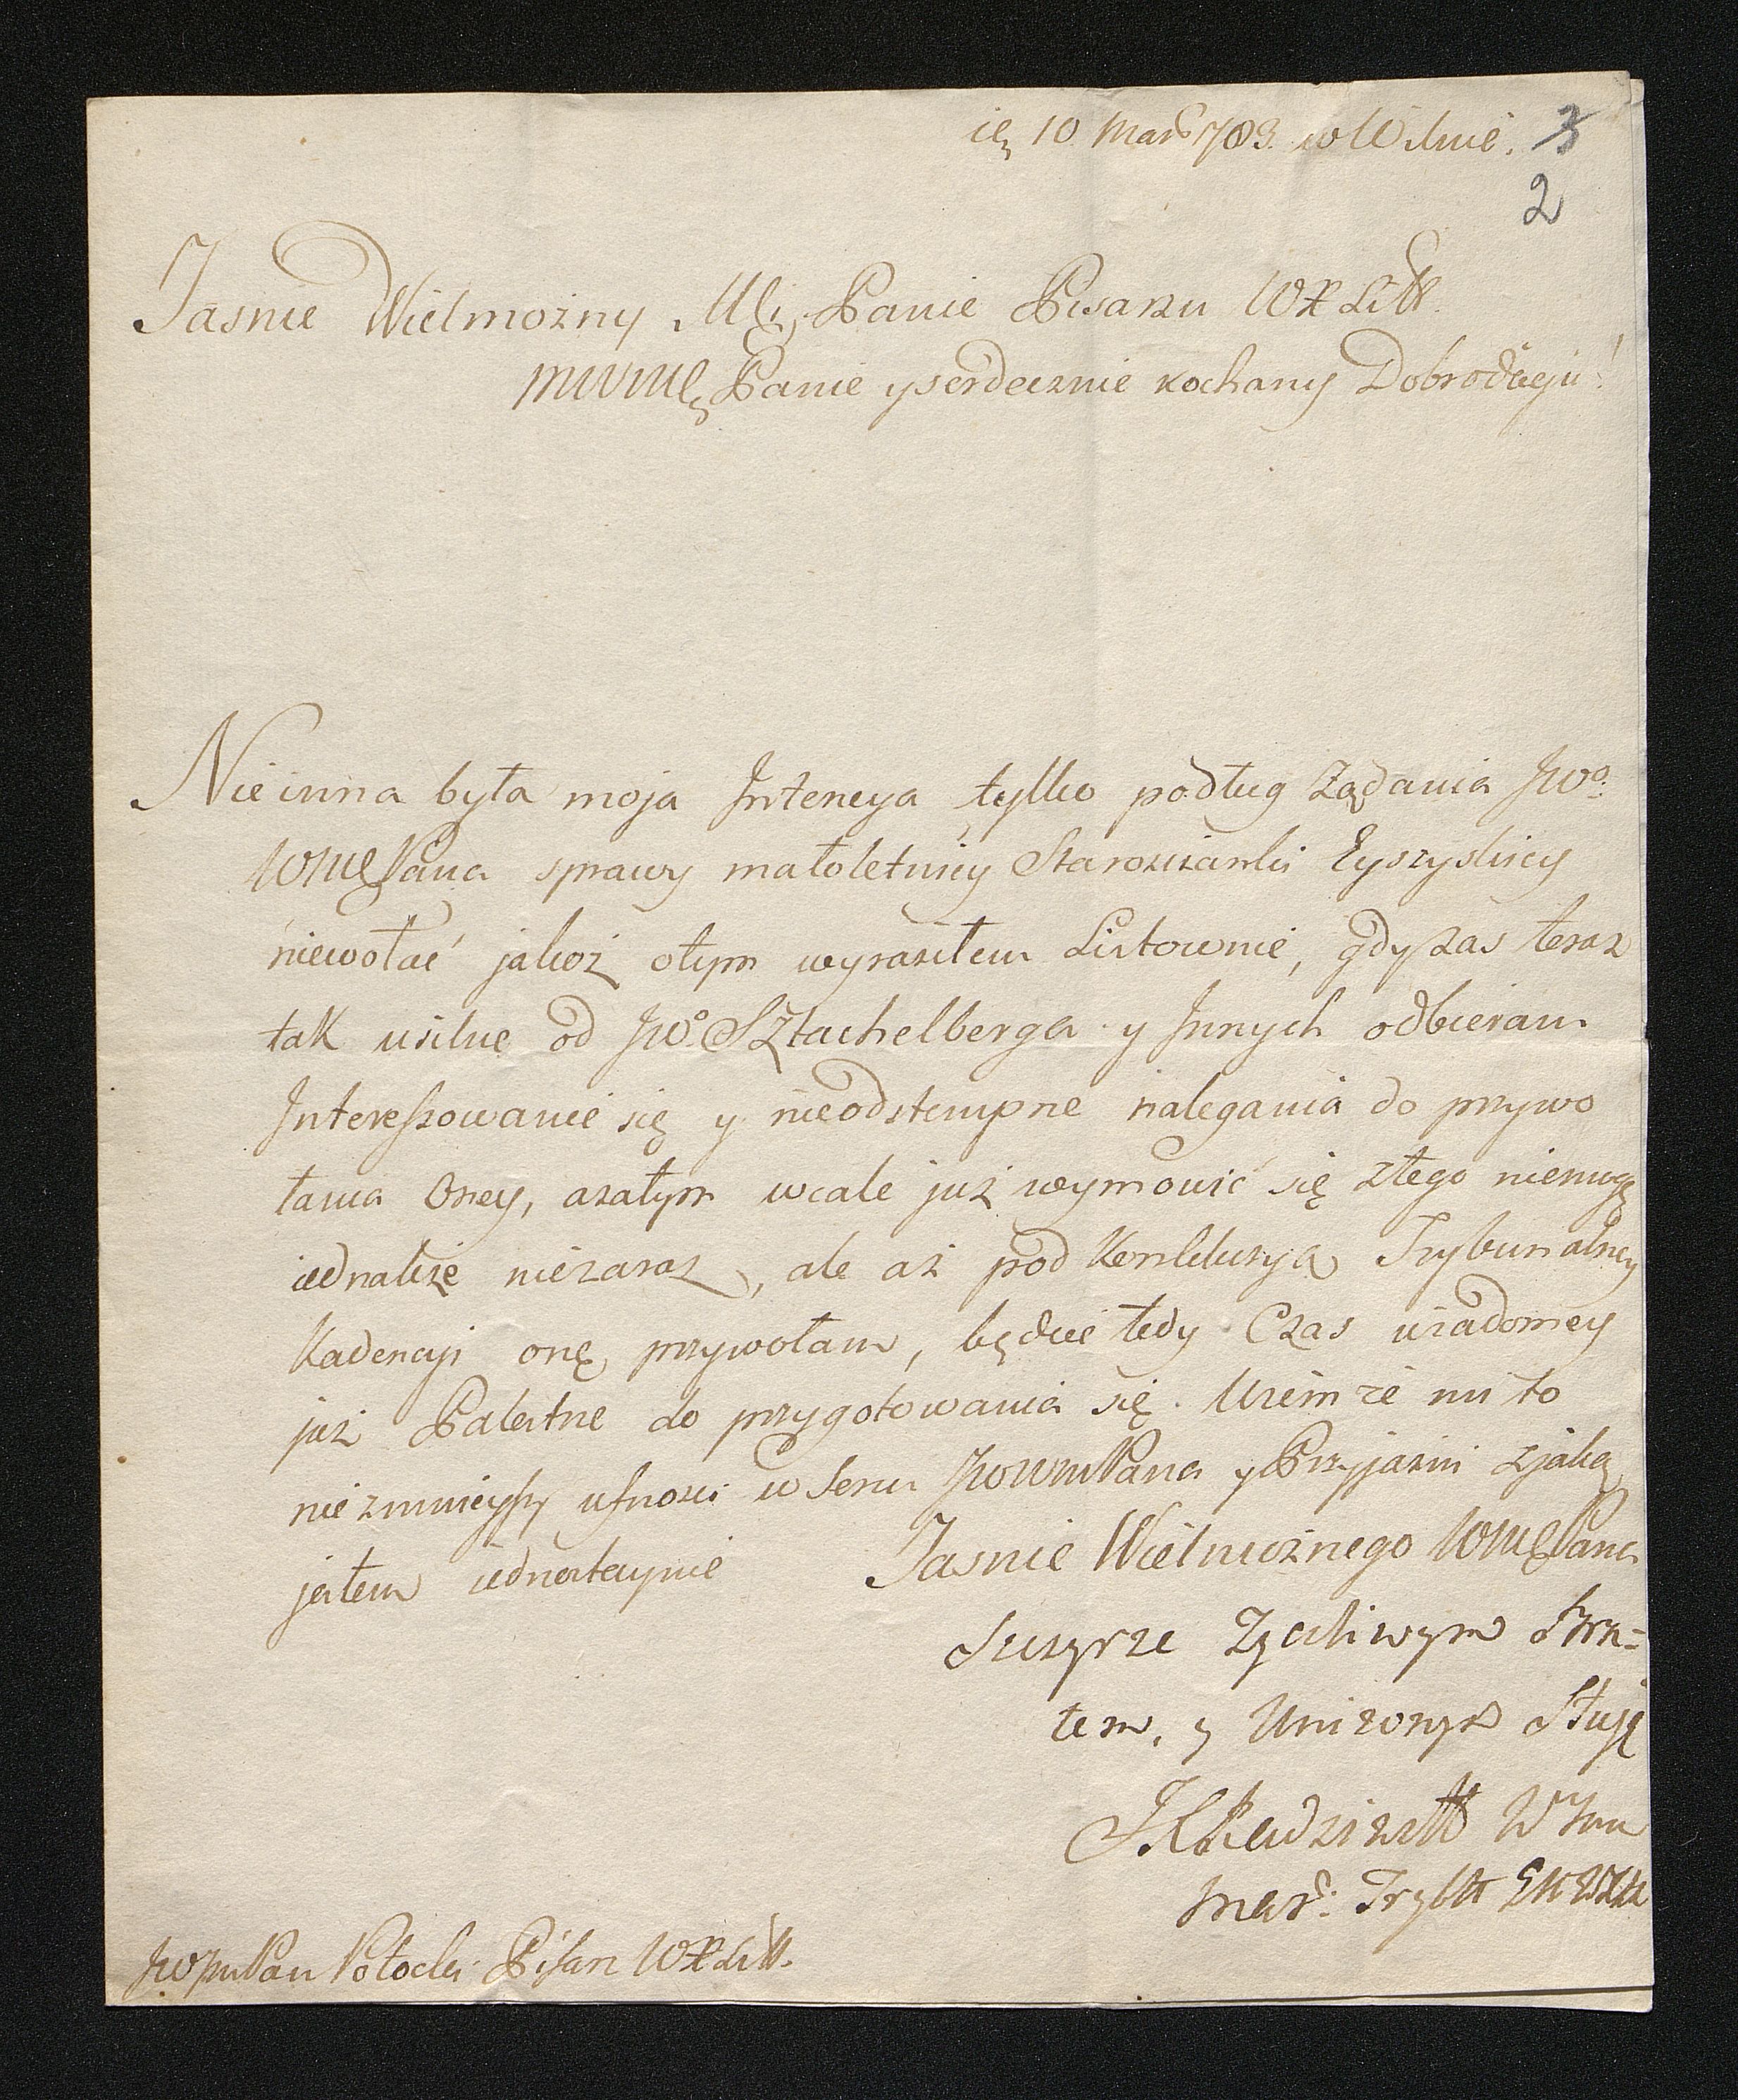 10 Mar 1783. w Wilnie. 3
2
Jasnie Wielmozny Mci Panie Pisarzu WXLitt.
mwmci Panie y serdecznie kochany Dobrodzieju!
Nie inna była moja Intencya tylko podług Ządania Jwo
WMci Pana sprawy małoletniey Starościanki Eyszyskiey
niewołać jakoż otym wyraziłem Listownie, gdy zas teraz
tak usilne od Jwo Sztachelberga y Innych odbieram
Interessowanie się y nieodstempne nalegania do przywo
łania Oney, azatym wcale już wymowić się ztego niemogę
iednakże niezaraz, ale aż pod Konkluzyą Trybunalney
Kadencyi onę przywołam, będzie tedy Czas wiadomey
już Palestrze do przygotowania się. Uzein że mi to
nie zmnieyszy ufnosci w Sercu JwWmPana y Przyjazni zjaką
jestem iednostaynie Jasnie Wielmożnego WMci Pana
Szczyrze Zycliwym Bra=
tem, y Unizonym Sługą
Radziwiłł W
Mar: Trybu
JwJmPan Potocki Pisarz WXLitt.